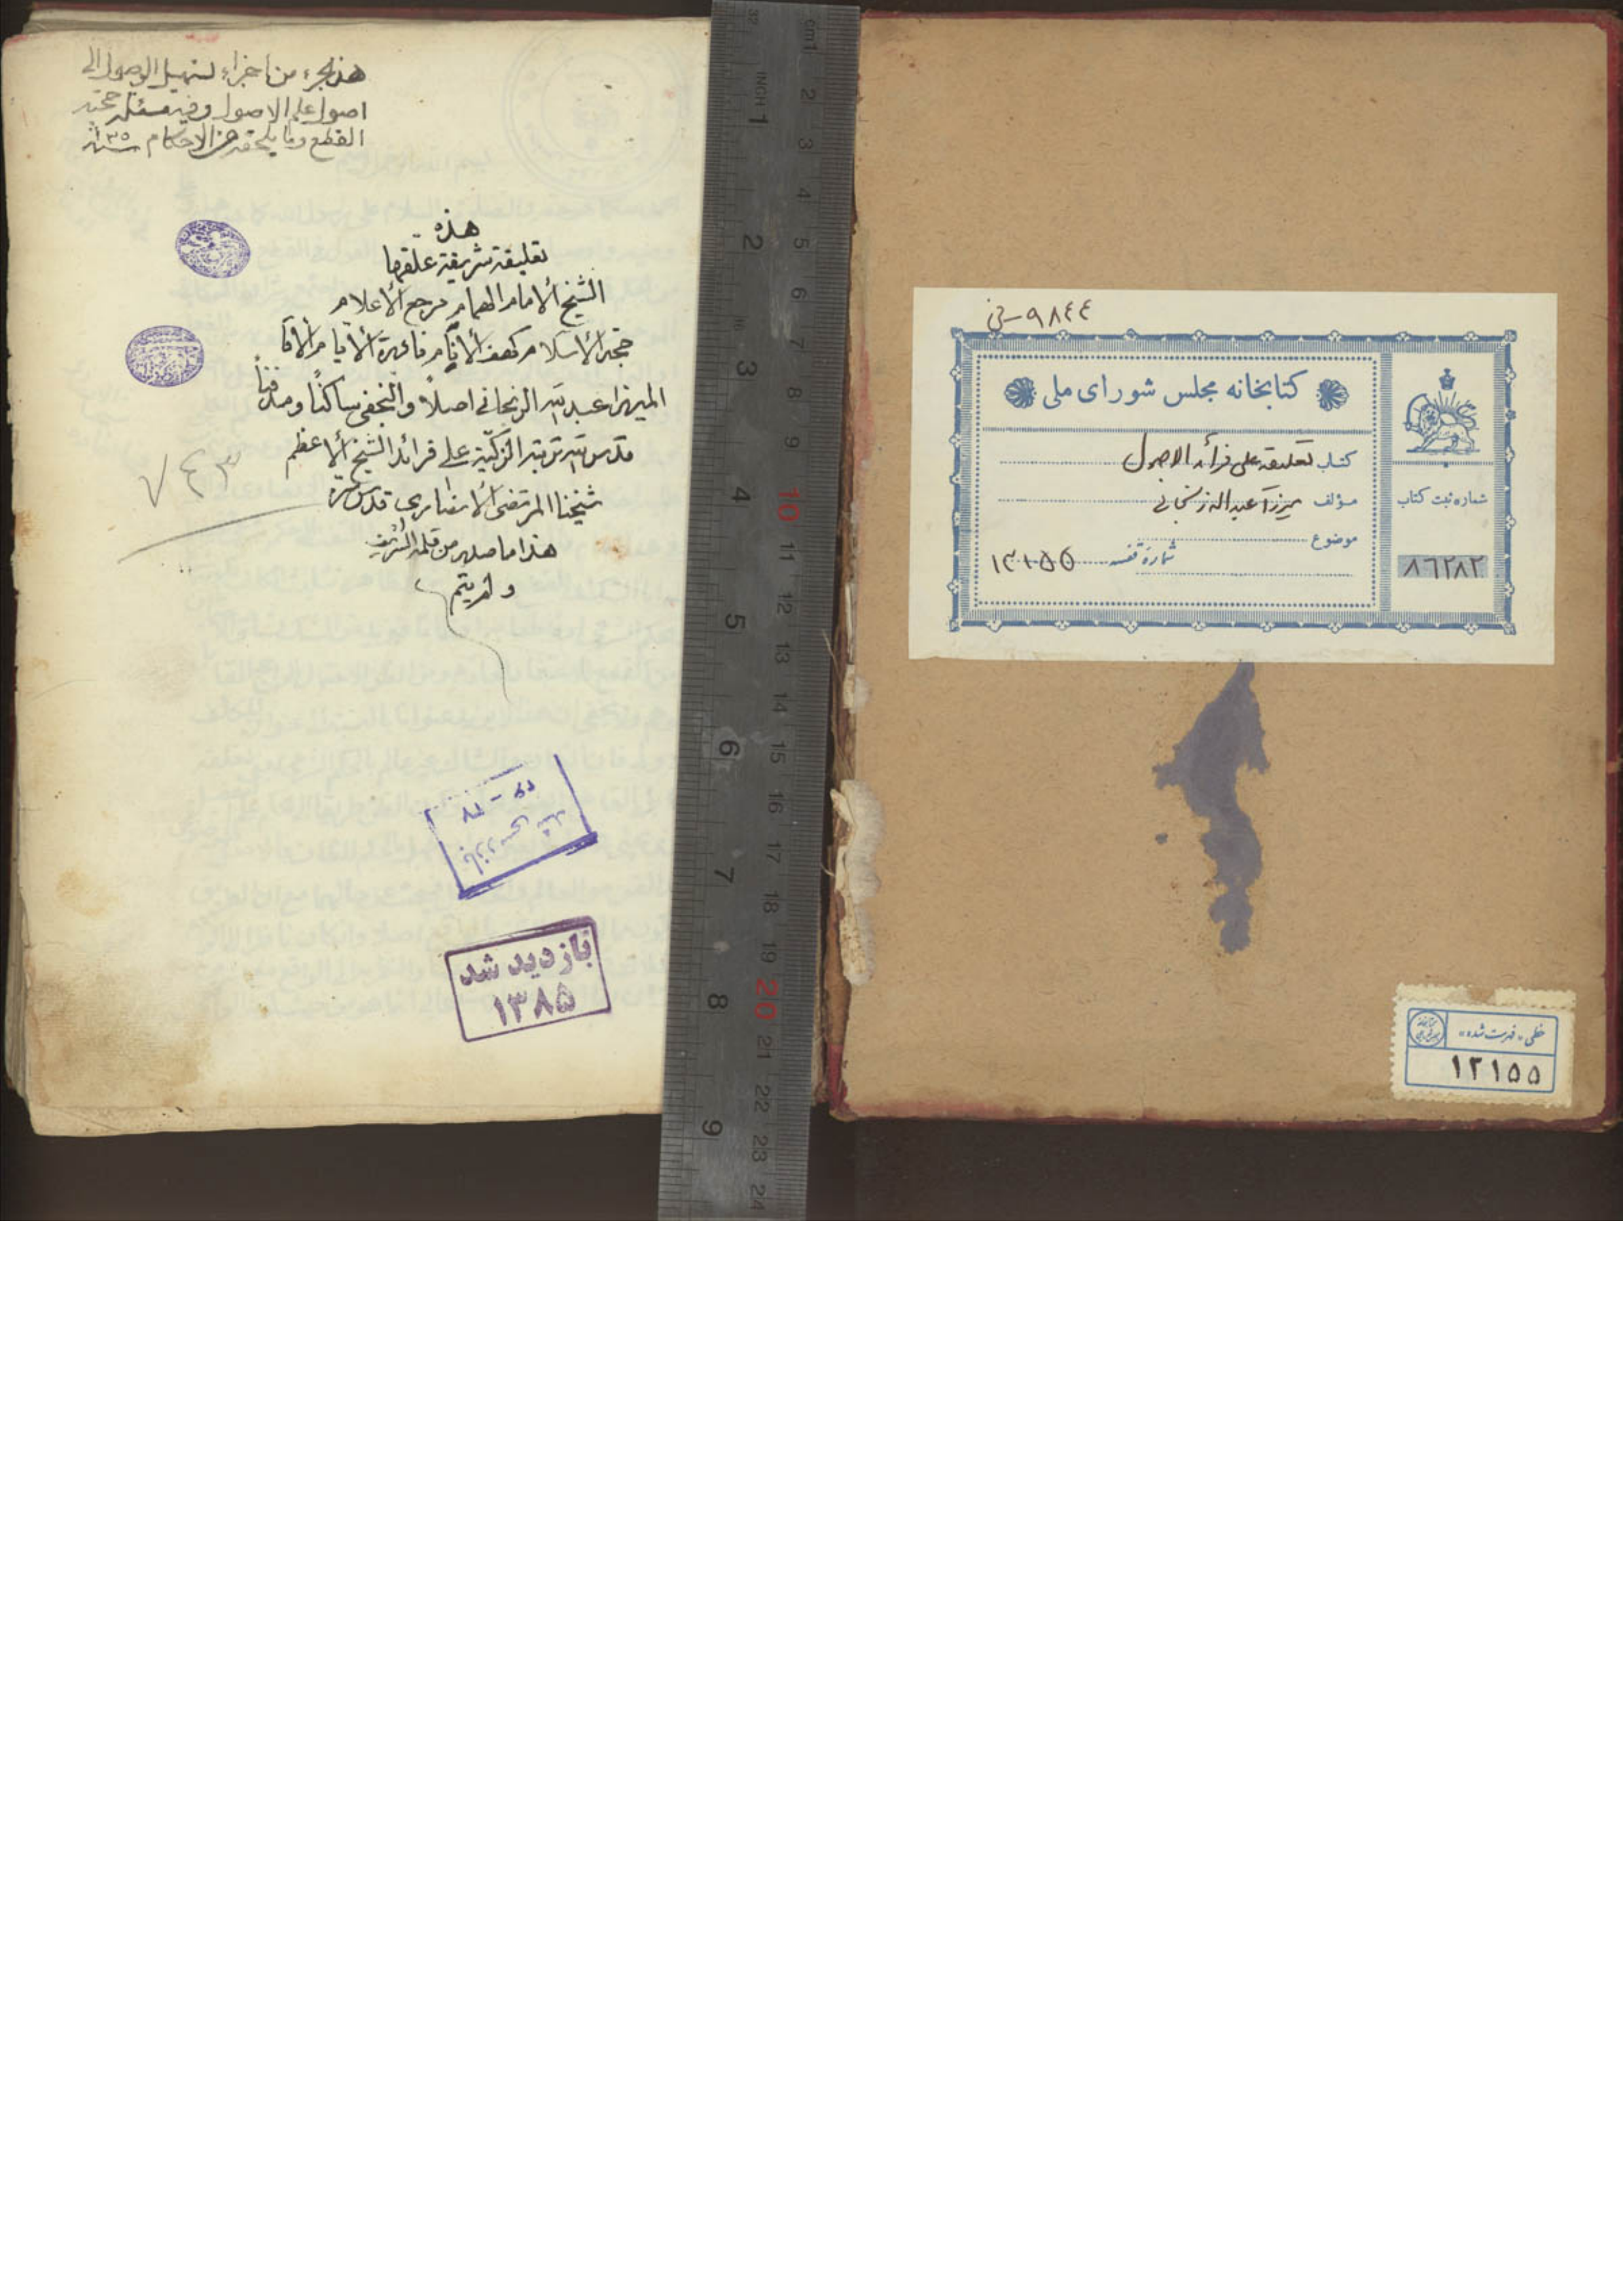 هذا جزء من اجزاء تسهيل الوصول الى
اصول علم الاصول وفيه مسئلة حجية
القطع وما يلحقه من الاحكام
هذه
تعليقة شريفة علقها
الشيخ الامام الهمام مرجع الاعلام
حجة الاسلام كهف الانام نادرة الايام الآقا
الميرزا عبد الله الزنجاني اصلاً والنجفي ساكناً ومدفناً
قدس الله تربته الزكية على فرائد الشيخ الاعظم
شيخنا المرتضى الانصاري قدس سره
هذا ما صدر من قلمه الشريف
ولم يتم
٧٤٣
بازدید شد
١٣٨٥
٩٨٤٤
کتابخانه مجلس شورای ملی
کتاب تعلیقه علی فرائد الاصول
مؤلف میرزا عبدالله زنجانی
موضوع
شماره قفسه ١٢١٥٥
شماره ثبت کتاب
٨٦٢٨٢
خطی «فهرست شده»
١٢١٥٥
cm1 2 3 4 5 6 7 8 9 10 11 12 13 14 15 16 17 18 19 20 21 22 23 24
INCH 1 2 3 4 5 6 7 8 9